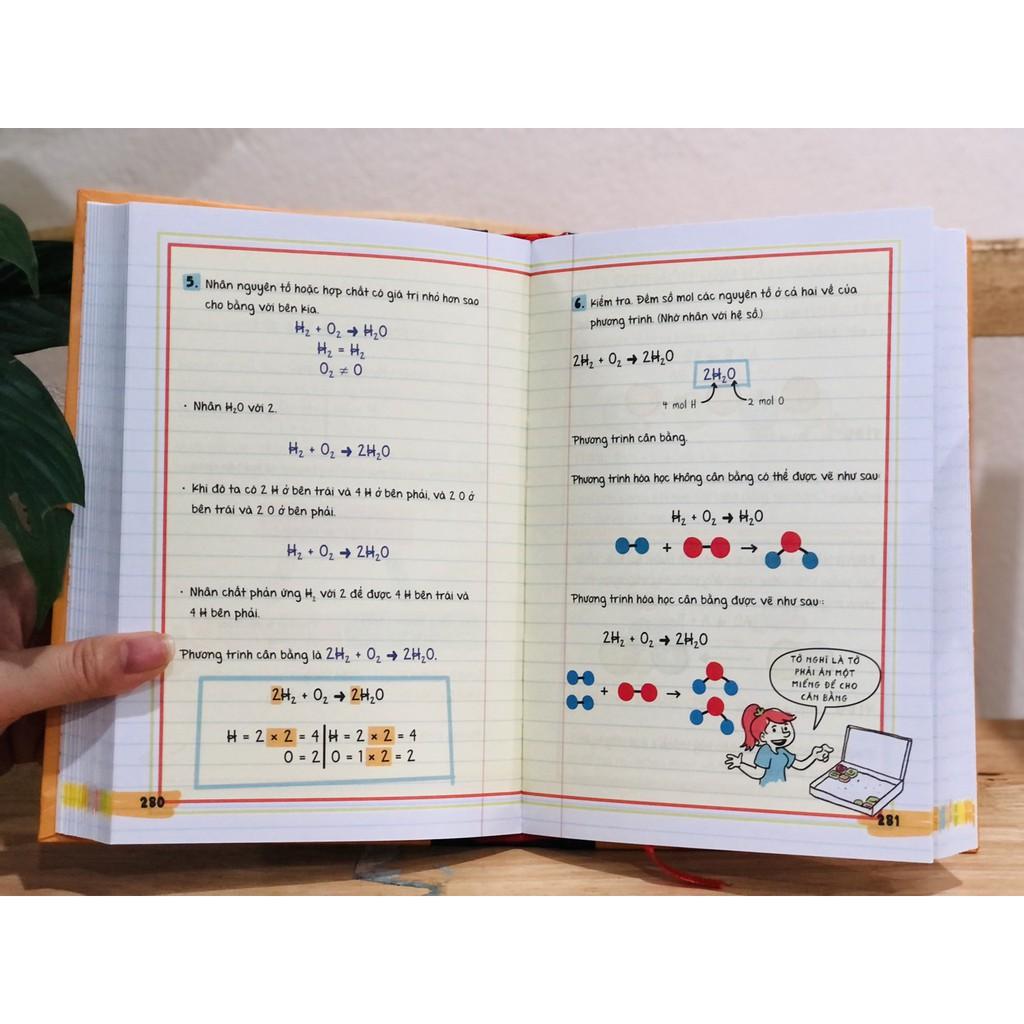 5. Nhân nguyên tố hoặc hợp chất có giá trị nhỏ hơn sao
cho bằng với bên kia.
H₂ + O₂ → H₂O
H₂ = H₂
O₂ ≠ O
• Nhân H₂O với 2.
H₂ + O₂ → 2H₂O
• Khi đó ta có 2 H ở bên trái và 4 H ở bên phải, và 2 O ở
bên trái và 2 O ở bên phải.
H₂ + O₂ → 2H₂O
• Nhân chất phản ứng H₂ với 2 để được 4 H bên trái và
4 H bên phải.
Phương trình cân bằng là 2H₂ + O₂ → 2H₂O.
2H₂ + O₂ → 2H₂O
H = 2 × 2 = 4 | H = 2 × 2 = 4
O = 2 | O = 1 × 2 = 2
280
6. Kiểm tra. Đếm số mol các nguyên tố ở cả hai vế của
phương trình. (Nhớ nhân với hệ số.)
2H₂ + O₂ → 2H₂O
2H₂O
4 mol H 2 mol O
Phương trình cân bằng.
Phương trình hóa học không cân bằng có thể được vẽ như sau
H₂ + O₂ → H₂O
+ →
Phương trình hóa học cân bằng được vẽ như sau:
2H₂ + O₂ → 2H₂O
+ →
TỚ NGHĨ LÀ TỚ
PHẢI ĂN MỘT
MIẾNG ĐỂ CHO
CÂN BẰNG
281